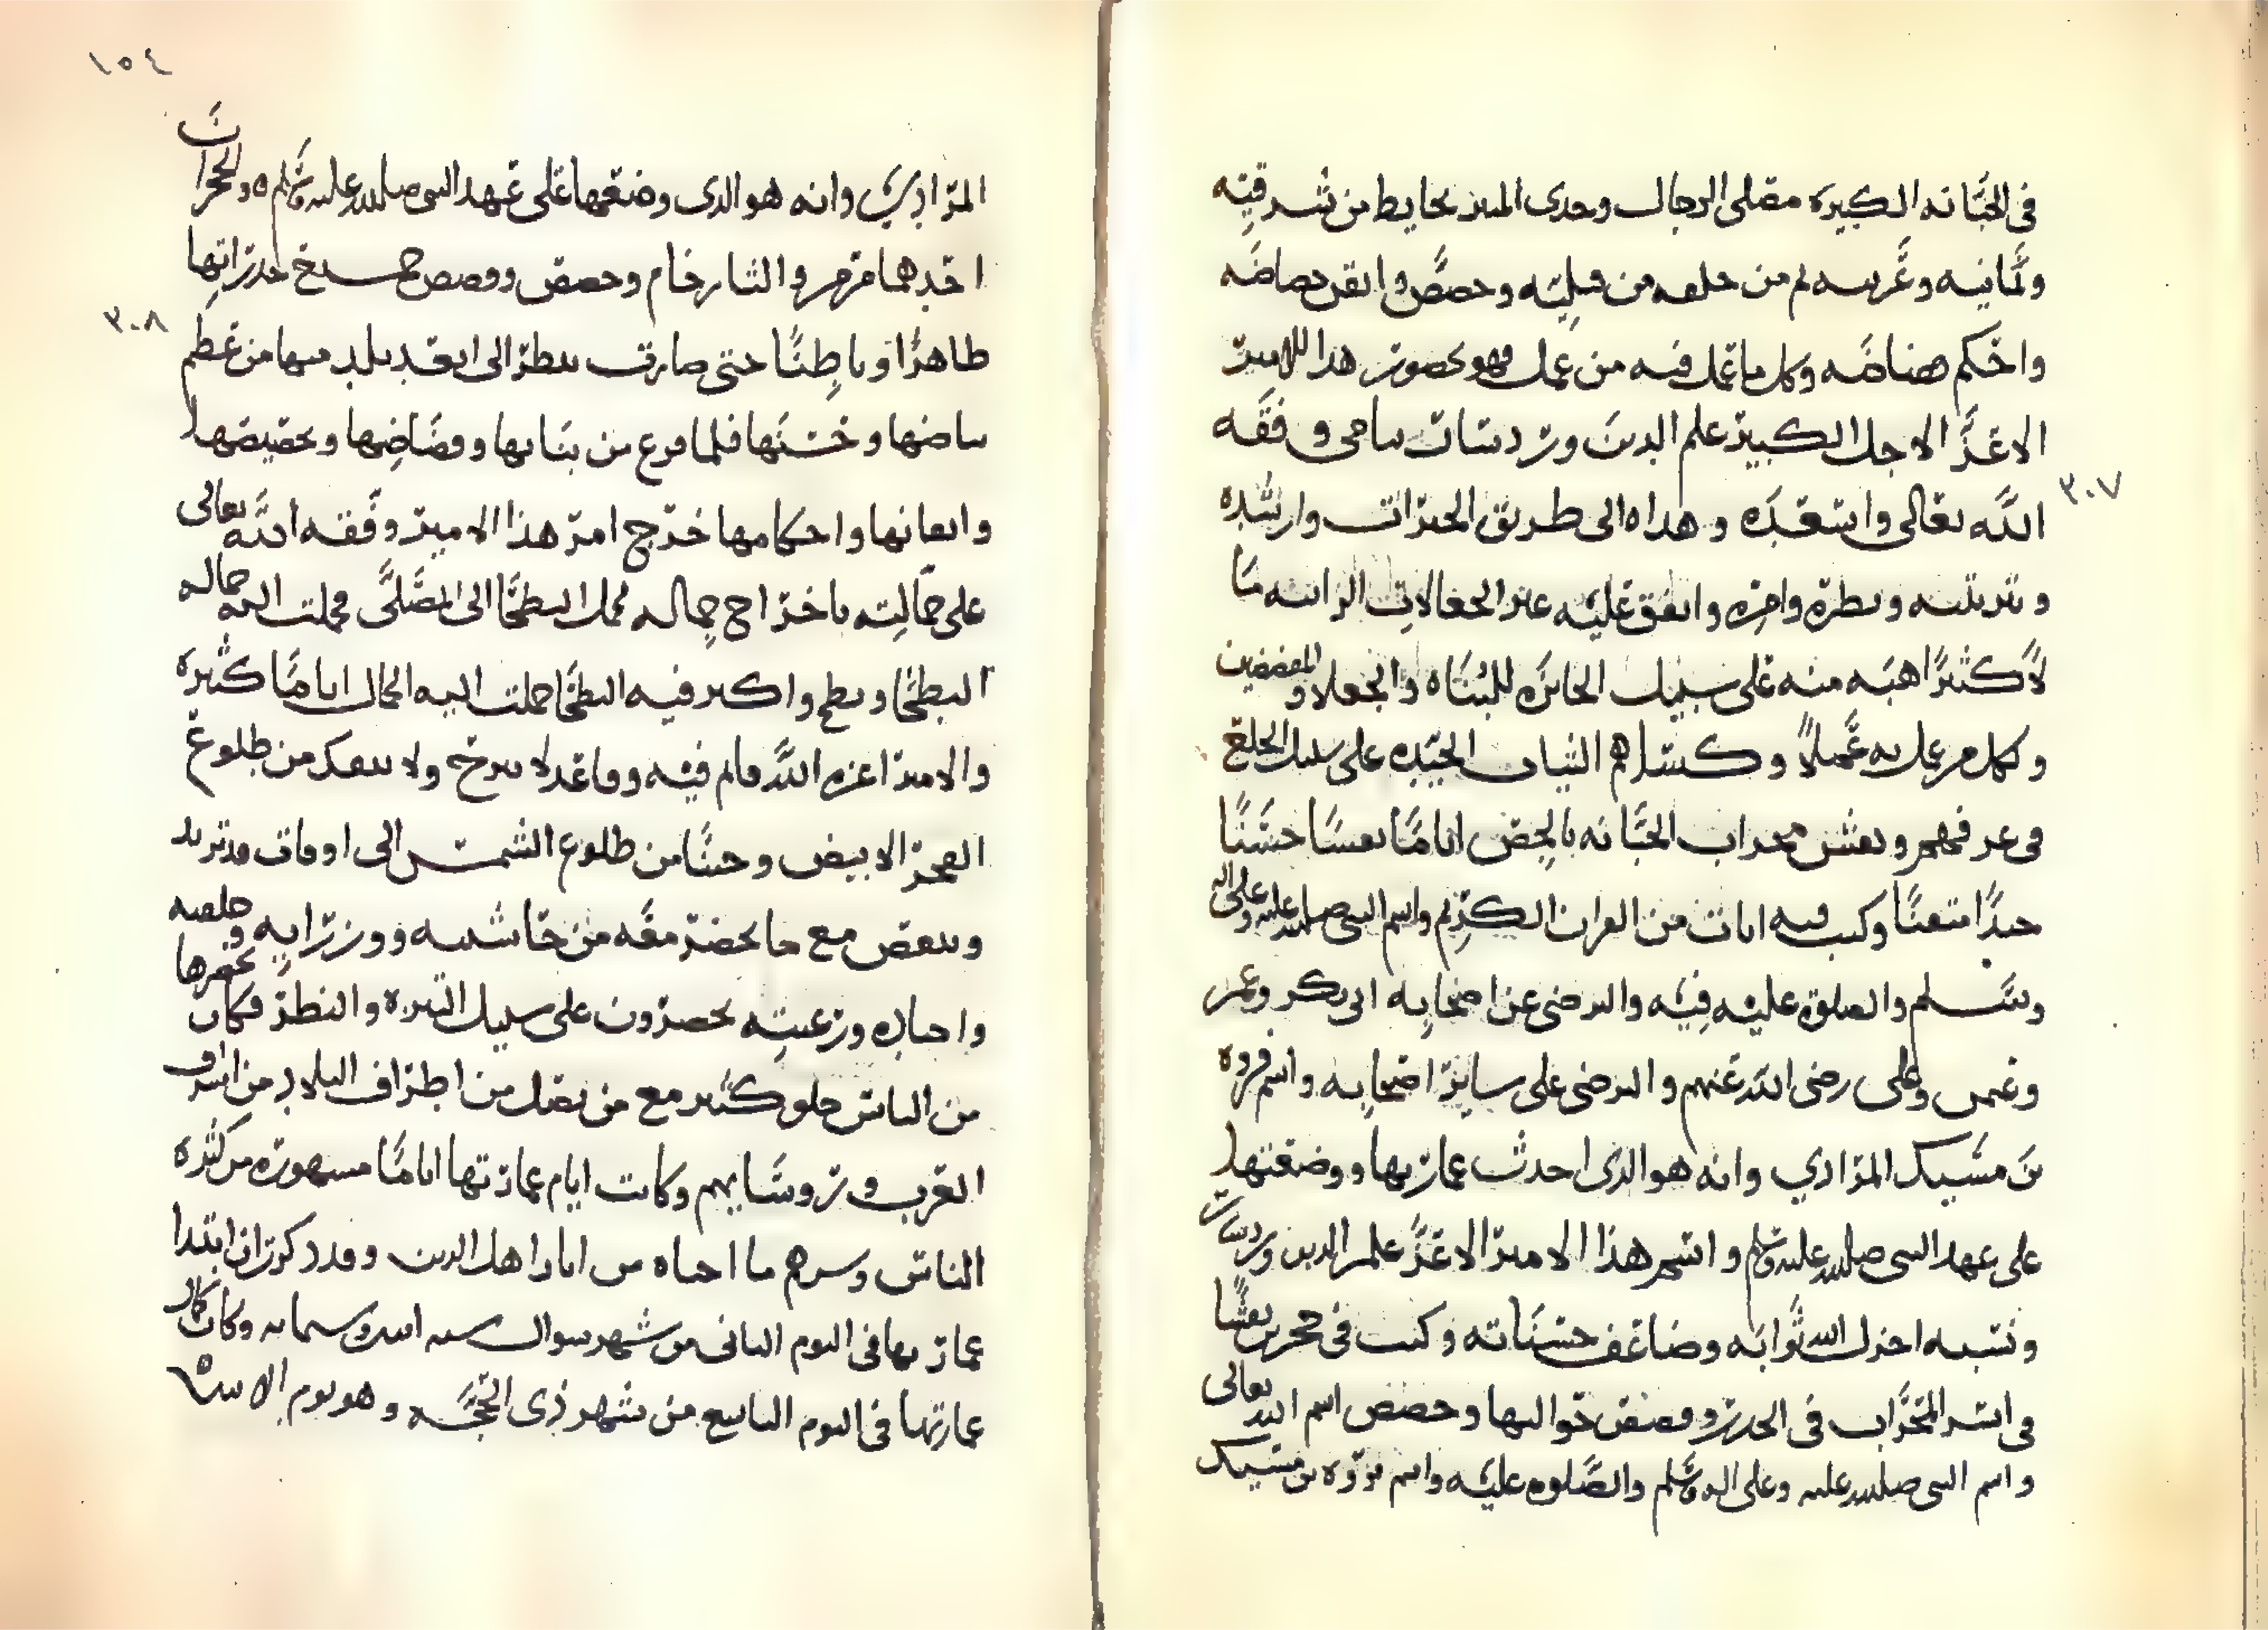 في الجبَّانه الكبيره مصلى الرجال وحدى المنبر بحايط من شرقيه
ويمانيه وغربيه ثم من خلفه من قبليّه وحصَّص واتقن حصاصه
واحكم هناضه وكل ما عمل فيه من عمل فهو بحضور هذا الامير
الاعزّ الاجل الكبير علم الدين وردشار سامي وفقه
٣٠٧
الله تعالى واسعده وهداه الى طريق الخيرات وارشده
وترتيبه ونظره وامره وانفق عليه غير الجعالات الراتبه مَا
لاً كثيرًا هبَه منه على سبيل الجائزه للبُنَاه والجعلا والمقضضين
وكل من عمل به عَملاً وكساهم الثياب الجيّده على سبيل الخلع
في عرفهم ونقش محراب الجبَّانه بالجص اياماً نقسًا حسَنًا
جيدًا متقنًا وكتب فيه ايات من القران الكريم واسم النبي صلى الله عليه وعلى اله
وسَلم والصلوة عليه فيه والترضي عن اصحابه ابى بكر وعمر
وعثمن وعلى رضى الله عنهم والترضى على ساير اصحابه واسم فروه
بن مسَيك المرادي وانه هو الذى احدث عمارتها ووضعها
على عهد النبي صلى الله عليه وسلم واسم هذا الامير الاعزّ علم الدين وردسار
ونسبه اجزل الله ثوابه وضاعف حسَناته وكتب في حجرين نقشًا
في اسر المحراب في الجدر وقصص حواليها وحصص اسم الله تعالى
واسم النبي صلى الله عليه وعلى اله وسلم والصَّلوه عليه واسم فروه بن مسيك
١٥٤
المرادِي وانه هو الذى وضعها على عهد النبي صلى الله عليه وسَلم ه والحجران
احدهما مرمر والثا رخام وحصص وقصص جميع جدراتها
٣٠٨
ظاهرًا وباطِنًا حتى صارت ينظر الى ابعد بلد منها من عظم
بياضها وحُسنها فلما فرغ من بنايها وقضَاضِها وتحصيصها
واتقانها واحكامها خرج امر هذا الامير وفقه الله تعالى
على جمَّالته باخراج جماله لحمل البطحَا الى المصَلَّى فحملت اليه جماله
البطحَا وبطح واكثر فيه البطحَا حملت اليه الجمال اياماً كثيره
والامير اعزه الله قايم فيه وقاعد لا يبرح ولا ينفك من طلوع
الفجر الابيض وحينًا من طلوع الشمس الى اوقات قد تزيد
وتنقص مع ما يحضر معَه من حَاشيته ووزرايه وخلصه
واجناده ورعيته يحضرون على سبيل النزه والنظر فكان يحضرها
من الناس خلق كثير مع من يصل من اطراف البلاد من اشراف
العرب وروسَايهم وكانت ايام عمارتها اياماً مشهوره من كثره
الناس وسرهم ما احياه من اثار اهل الدين وقد ذكرت ان ابتدا
عمارتها فى اليوم الثانى من شهر شوال سنه اثنين وستمايه وكان كمال
عمارتها في اليوم التاسع من شهر ذي الحجَّه وهو يوم الاثنين